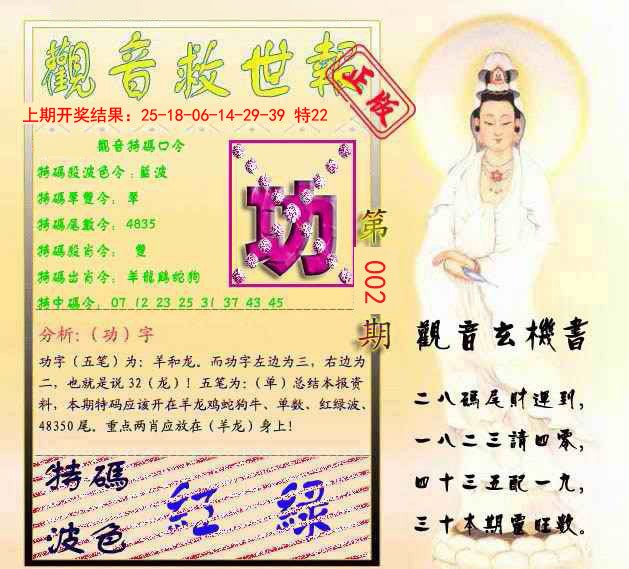 觀音救世報
正版
上期开奖结果：25-18-06-14-29-39 特22
觀音特碼口令
特碼段波色令：藍波
特碼單雙令： 單
特碼尾數令： 4835
特碼段肖令： 雙
特碼出肖令：羊龍鷄蛇狗
特中碼令：07 12 23 25 31 37 43 45
功
第002期
分析:（功）字
功字（五笔）为：羊和龙。而功字左边为三，右边为
二，也就是说32（龙）！五笔为：（单）总结本报资
料，本期特码应该开在羊龙鸡蛇狗牛、单数、红绿波、
48350尾。重点两肖应放在（羊龙）身上！
特碼
波色
紅 綠
觀音玄機書
二八碼尾財運到，
一八二三請四零，
四十三五配一九，
三十本期靈旺數。